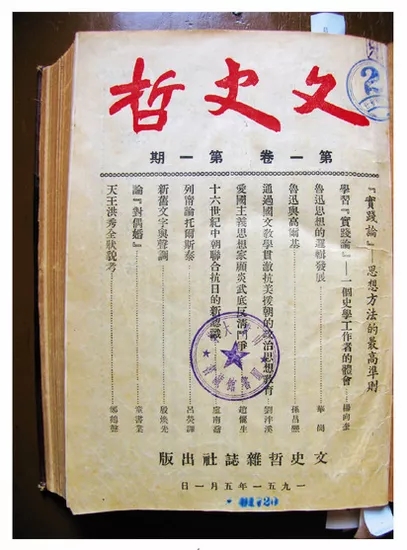 文史哲
第一卷 第一期
『實踐論』——思想方法的最高準則
學習『實踐論』——一個史學工作者的體會 楊向奎
魯迅思想的邏輯發展 華崗
魯迅與高爾基 孫昌熙
通過國文教學貫澈抗美援朝的政治思想教育 劉泮溪
愛國主義思想家顧炎武底反清鬥爭 趙儷生
十六世紀中朝聯合抗日的新認識 盧南喬
列甯論托爾斯泰 呂熒譯
新舊文字與聲調 殷煥先
論『對偶婚』 童書業
天王洪秀全狀貌考 鄭鶴聲
文史哲雜誌社出版
一九五一年五月一日
01720